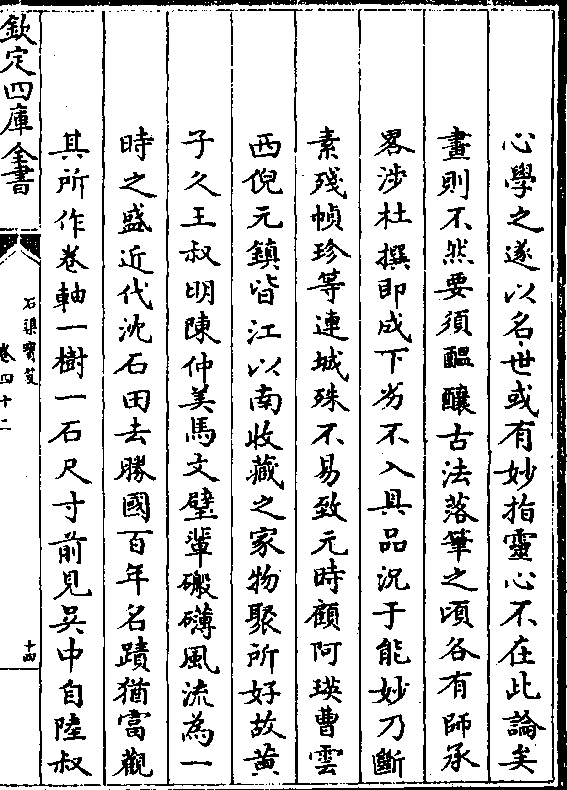 心學之遂以名世或有妙指靈心不在此論矣
畫則不然要須醞釀古法落筆之頃各有師承
畧涉杜撰即成下劣不入具品況于能妙乃斷
素殘幀珍等連城殊不易致元時顧阿瑛曹雲
西倪元鎮皆江以南收藏之家物聚所好故黄
子久王叔明陳仲美馬文璧輩磤礴風流為一
時之盛近代沈石田去勝國百年名蹟猶富觀
其所作卷軸一樹一石尺寸前見吳中自陸叔
欽定四庫全書
石渠寳芨
卷四十二
十四